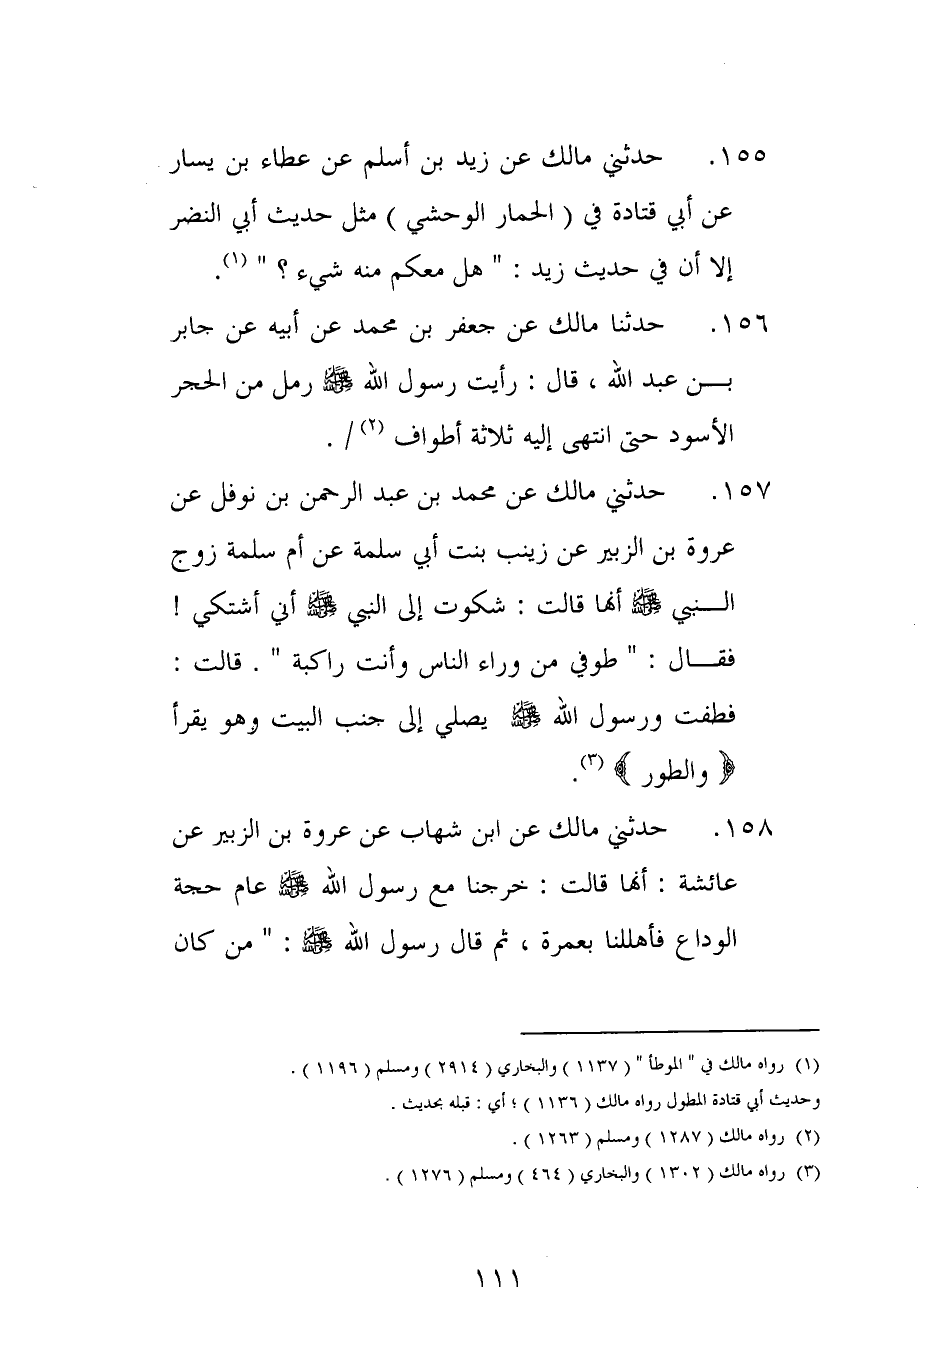 ١٥٥. حدثني مالك عن زيد بن أسلم عن عطاء بن يسار
عن أبي قتادة في ( الحمار الوحشي ) مثل حديث أبي النضر
إلا أن في حديث زيد : " هل معكم منه شيء ؟ " (١).
١٥٦. حدثنا مالك عن جعفر بن محمد عن أبيه عن جابر
بـــن عبد الله ، قال : رأيت رسول الله ﷺ رمل من الحجر
الأسود حتى انتهى إليه ثلاثة أطواف (٢)/ .
١٥٧. حدثني مالك عن محمد بن عبد الرحمن بن نوفل عن
عروة بن الزبير عن زينب بنت أبي سلمة عن أم سلمة زوج
الـــنبي ﷺ أنها قالت : شكوت إلى النبي ﷺ أني أشتكي !
فقـــال : " طوفي من وراء الناس وأنت راكبة " . قالت :
فطفت ورسول الله ﷺ يصلي إلى جنب البيت وهو يقرأ
﴿ والطور ﴾ (٣).
١٥٨. حدثني مالك عن ابن شهاب عن عروة بن الزبير عن
عائشة : أنها قالت : خرجنا مع رسول الله ﷺ عام حجة
الوداع فأهللنا بعمرة ، ثم قال رسول الله ﷺ : " من كان
(١) رواه مالك في " الموطأ " ( ١١٣٧ ) والبخاري ( ٢٩١٤ ) ومسلم ( ١١٩٦ ) .
وحديث أبي قتادة المطول رواه مالك ( ١١٣٦ ) ؛ أي : قبله بحديث .
(٢) رواه مالك ( ١٢٨٧ ) ومسلم ( ١٢٦٣ ) .
(٣) رواه مالك ( ١٣٠٢ ) والبخاري ( ٤٦٤ ) ومسلم ( ١٢٧٦ ) .
١١١